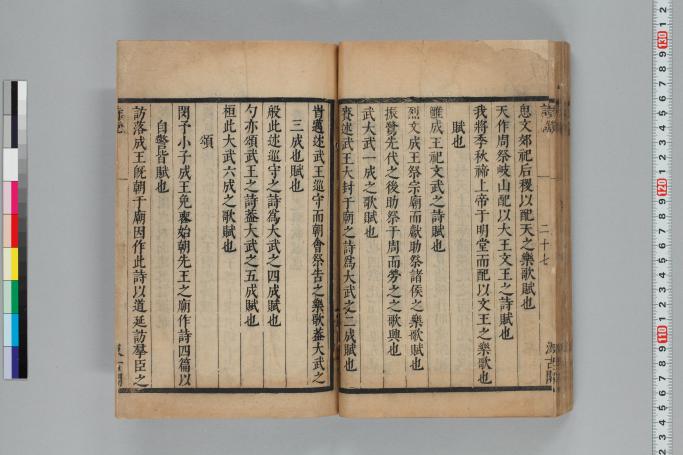 思文郊祀后稷以配天之樂歌賦也
天作周祭岐山配以大王文王之詩賦也
我將季秋禘上帝于明堂而配以文王之樂歌也
賦也
雝成王祀文武之詩賦也
烈文成王祭宗廟而獻助祭諸侯之樂歌賦也
振鷺先代之後助祭于周而勞之之歌興也
武大武一成之歌賦也
賚述武王大封于廟之詩爲大武之二成賦也
二十七
汲古閣
時邁述武王巡守而朝會祭告之樂歌蓋大武之
三成也賦也
般此述巡守之詩爲大武之四成賦也
勺亦頌武王之詩蓋大武之五成賦也
桓此大武六成之歌賦也
頌
閔予小子成王免喪始朝先王之廟作詩四篇以
自警皆賦也
訪落成王旣朝于廟因作此詩以道延訪羣臣之